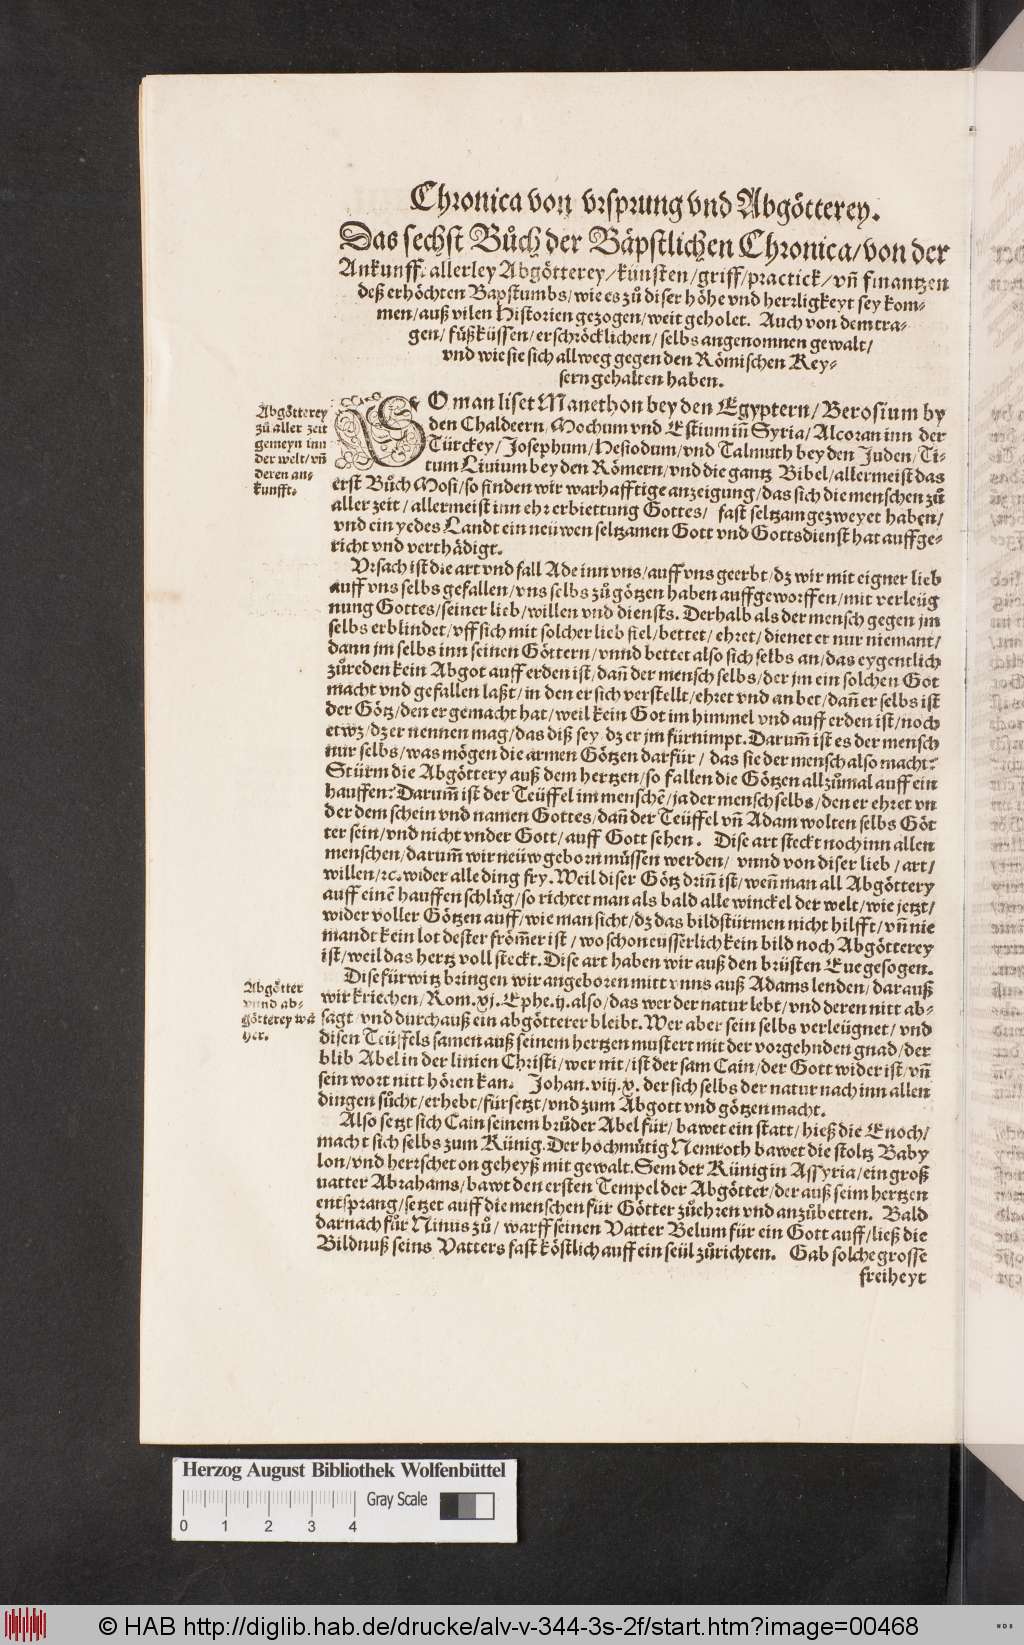 Chronica von vrsprung vnd Abgötterey.
Das sechst Bůch der Bäpstlichen Chronica/ von der
Ankunfft allerley Abgötterey/ künsten/ griff/ practick/ vñ finantzen
deß erhöchten Bapstumbs/ wie es zů diser höhe vnd herrligkeyt sey kom-
men/ auß vilen Historien gezogen/ weit geholet. Auch von dem tra-
gen/ fůßküssen/ erschröcklichen/ selbs angenomnen gewalt/
vnd wie sie sich allweg gegen den Römischen Key-
sern gehalten haben.
Abgötterey
zů aller zeit
gemeyn inn
der welt/ vñ
deren an-
kunfft.
SO man liset Manethon bey den Egyptern/ Berosium by
den Chaldeern/ Mochum vnd Estium iñ Syria/ Alcoran inn der
Türckey/ Josephum/ Hesiodum/ vnd Talmuth bey den Juden/ Ti-
tum Liuium bey den Römern/ vnd die gantz Bibel/ allermeist das
erst Bůch Mosi/ so finden wir warhafftige anzeigung/ das sich die menschen zů
aller zeit/ allermeist inn ehr erbiettung Gottes/ fast seltzam gezweyet haben/
vnd ein yedes Landt ein neüwen seltzamen Gott vnd Gottsdienst hat auffge-
richt vnd verthädigt.
Vrsach ist die art vnd fall Ade inn vns/ auff vns geerbt/ dz wir mit eigner lieb
auff vns selbs gefallen/ vns selbs zů götzen haben auffgeworffen/ mit verleüg
nung Gottes/ seiner lieb/ willen vnd diensts. Derhalb als der mensch gegen jm
selbs erblindet/ vff sich mit solcher lieb fiel/ bettet/ ehret/ dienet er nur niemant/
dann jm selbs inn seinen Göttern/ vnnd bettet also sich selbs an/ das eygentlich
zůreden kein Abgot auff erden ist/ dañ der mensch selbs/ der jm ein solchen Got
macht vnd gefallen laßt/ in den er sich verstellt/ ehret vnd an bet/ dañ er selbs ist
der Götz/ den er gemacht hat/ weil kein Got im himmel vnd auff erden ist/ noch
etwz/ dz er nennen mag/ das diß sey dz er jm fürnimpt. Darum̃ ist es der mensch
nur selbs/ was mögen die armen Götzen darfür/ das sie der mensch also macht?
Stürm die Abgöttery auß dem hertzen/ so fallen die Götzen allzůmal auff ein
hauffen: Darum̃ ist der Teüffel im menschẽ/ ja der mensch selbs/ den er ehret vn
der dem schein vnd namen Gottes/ dañ der Teüffel vñ Adam wolten selbs Göt
ter sein/ vnd nicht vnder Gott/ auff Gott sehen. Dise art steckt noch inn allen
menschen/ darum̃ wir neüwgeborn můssen werden/ vnnd von diser lieb/ art/
willen/ ꝛc. wider alle ding fry. Weil diser Götz driñ ist/ weñ man all Abgöttery
auff einẽ hauffen schlůg/ so richtet man als bald alle winckel der welt/ wie jetzt/
wider voller Götzen auff/ wie man sicht/ dz das bildstürmen nicht hilfft/ vñ nie
mandt kein lot dester fröm̃er ist/ wo schon eusserlich kein bild noch Abgötterey
ist/ weil das hertz voll steckt. Dise art haben wir auß den brüsten Eue gesogen.
Abgötter
vnnd ab-
götterey wä
her.
Dise fürwitz bringen wir angeboren mitt vnns auß Adams lenden/ dar auß
wir kriechen/ Rom. vj. Ephe. ij. also/ das wer der natur lebt/ vnd deren nitt ab-
sagt/ vnd durchauß ein abgötterer bleibt. Wer aber sein selbs verleügnet/ vnd
disen Teüffels samen auß seinem hertzen mustert mit der vorgehnden gnad/ der
blib Abel in der linien Christi/ wer nit/ ist der sam Cain/ der Gott wider ist/ vñ
sein wort nitt hören kan. Johan. viij. x. der sich selbs der natur nach inn allen
dingen sůcht/ erhebt/ fürsetzt/ vnd zum Abgott vnd götzen macht.
Also setzt sich Cain seinem brůder Abel für/ bawet ein statt/ hieß die Enoch/
macht sich selbs zum Künig. Der hochmütig Nemroth bawet die stoltz Baby
lon/ vnd herrschet on geheyß mit gewalt. Sem der Künig in Assyria/ ein groß
vatter Abrahams/ bawt den ersten Tempel der Abgötter/ der auß seim hertzen
entsprang/ setzet auff die menschen für Götter zůehren vnd anzůbetten. Bald
darnach fůr Ninus zů/ warff seinen Vatter Belum für ein Gott auff/ ließ die
Bildnuß seins Vatters fast köstlich auff ein seül zůrichten. Gab solche grosse
freiheyt
Herzog August Bibliothek Wolfenbüttel
Gray Scale
0 1 2 3 4
© HAB http://diglib.hab.de/drucke/alv-v-344-3s-2f/start.htm?image=00468